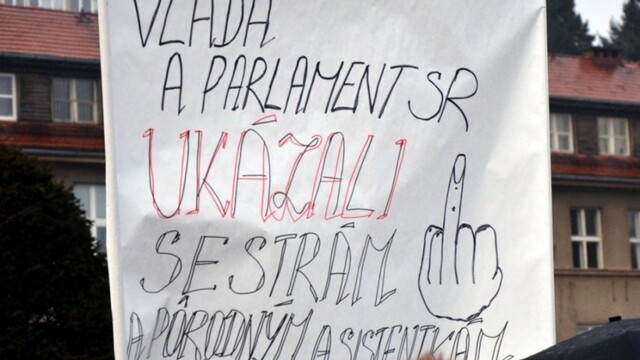 VLÁDA
A PARLAMENT SR
UKÁZALI
SESTRÁM
A PÔRODNÝM ASISTENTKÁM